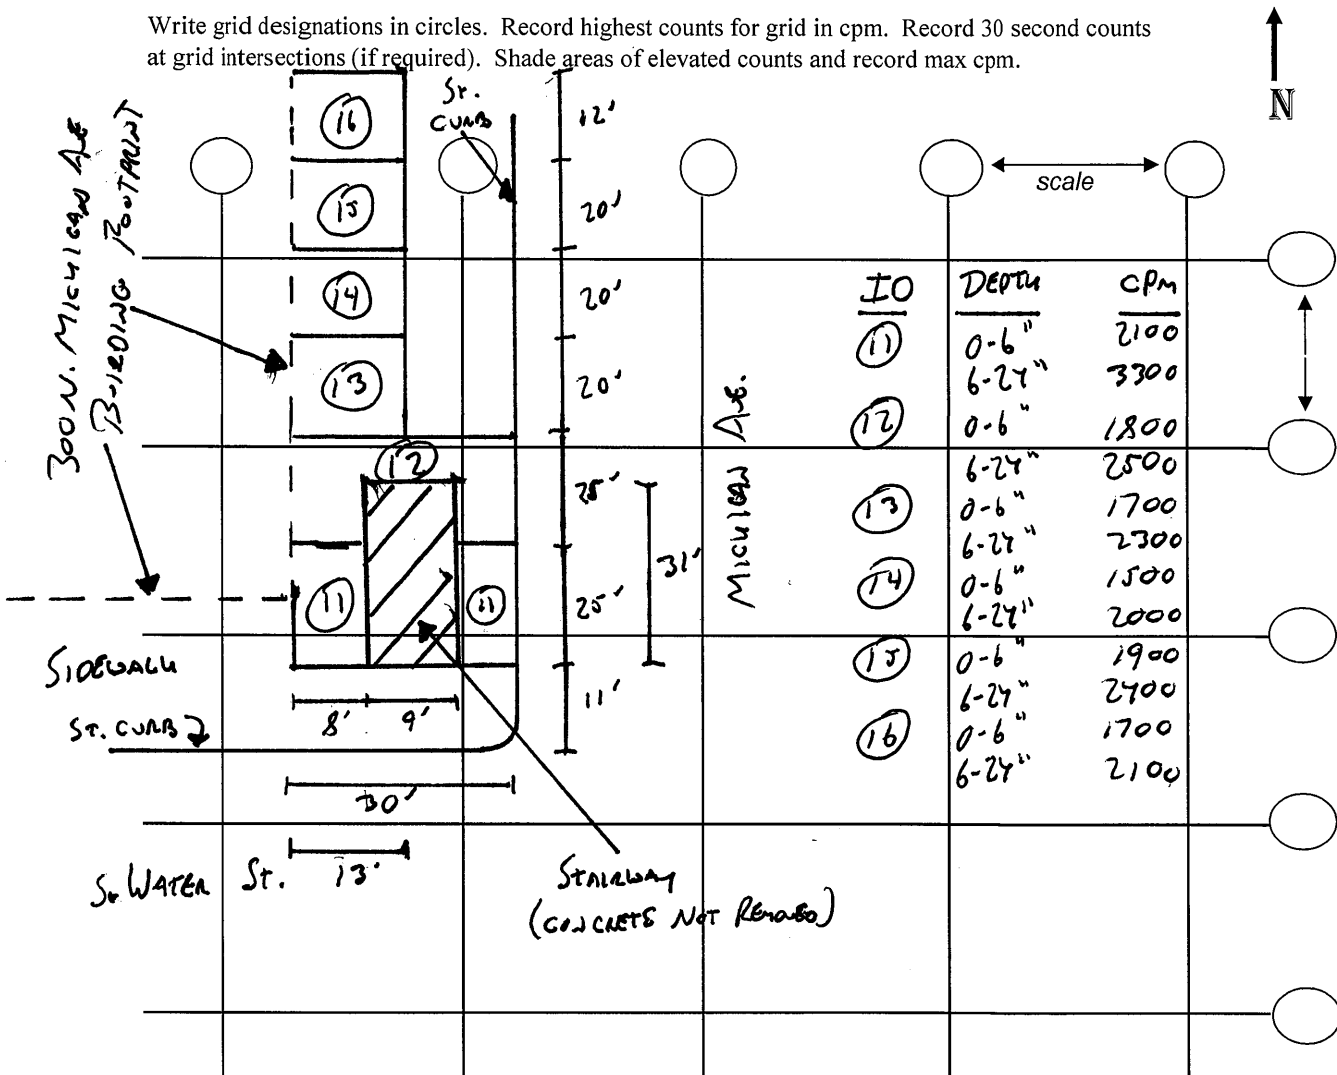 Write grid designations in circles. Record highest counts for grid in cpm. Record 30 second counts
at grid intersections (if required). Shade areas of elevated counts and record max cpm.
N
scale
300 N. MICHIGAN AVE
BUILDING FOOTPRINT
ST.
CURB
16
15
14
13
12
11
11
12'
20'
20'
20'
25'
25'
11'
31'
8'
9'
30'
13'
SIDEWALK
ST. CURB
WATER ST.
STAIRWAY
(CONCRETE NOT REMOVED)
MICHIGAN AVE.
ID DEPTH CPM
11 0-6" 2100
6-24" 3300
12 0-6" 1800
6-24" 2500
13 0-6" 1700
6-24" 2300
14 0-6" 1500
6-24" 2000
15 0-6" 1900
6-24" 2400
16 0-6" 1700
6-24" 2100